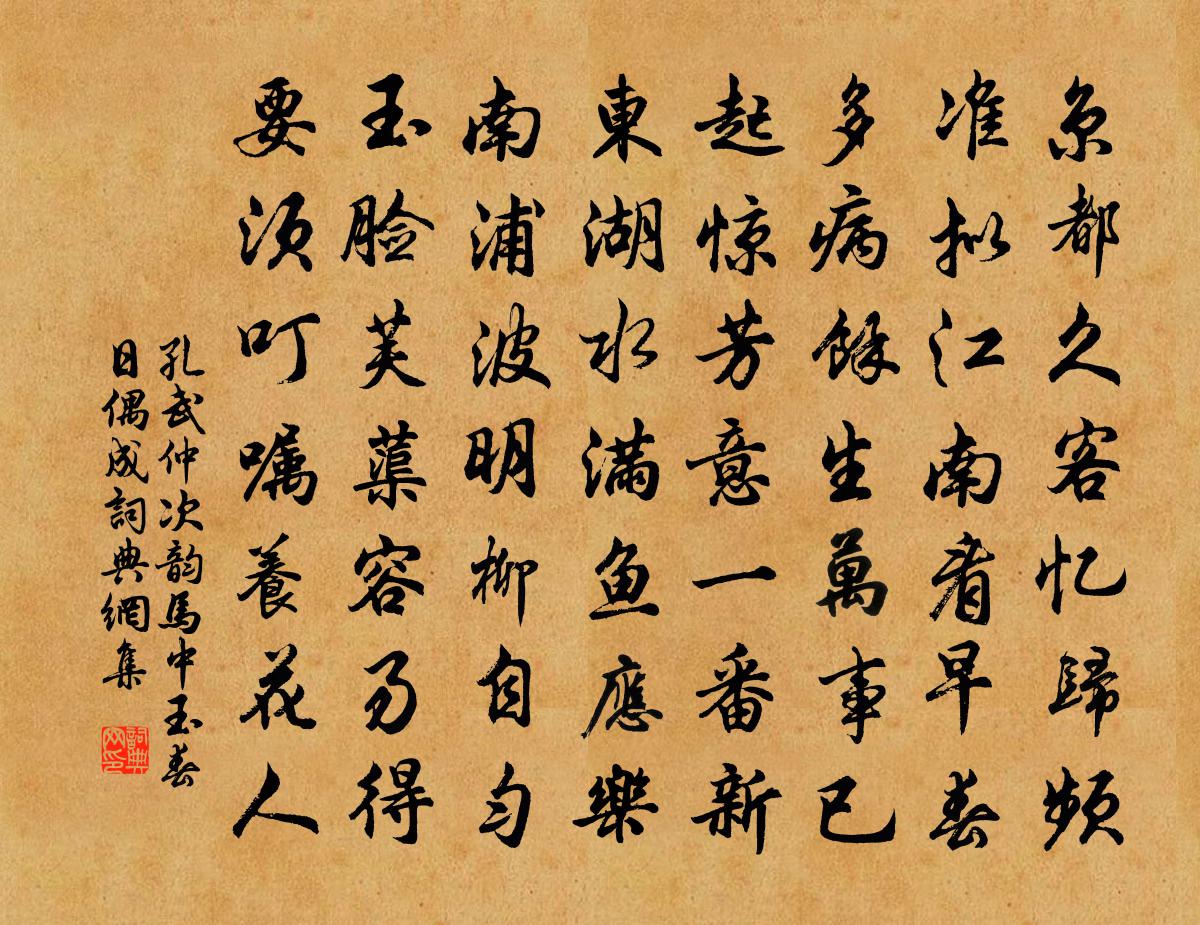 京都久客忆歸頻
准拟江南看早春
多病餘生萬事已
起惊芳意一番新
東湖水满鱼應樂
南浦波明柳自匀
玉脸芙蕖容易得
要须叮嘱養花人
孔武仲次韵馬中玉春
日偶成詞典網集
詞典网印